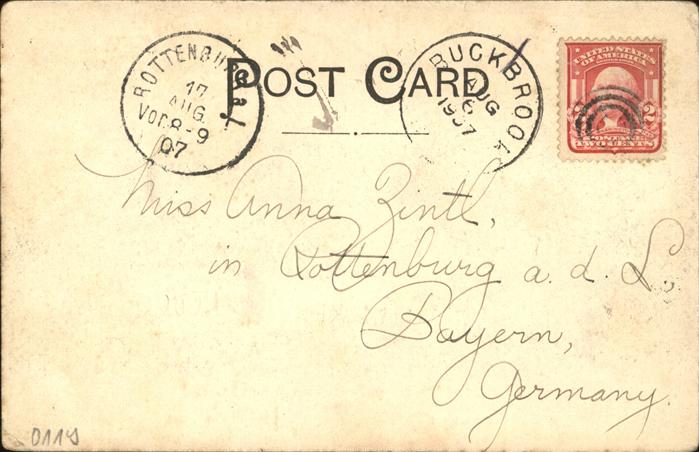 POST CARD
ROTTENBU
a/L
17
AUG.
Vor. 8-9
07
BUCKBROOK
AUG
6
1907
UNITED STATES
OF AMERICA
2 2
POSTAGE
TWO CENTS
Miss Anna Zintl,
in Rottenburg a. d. L.,
Bayern,
Germany.